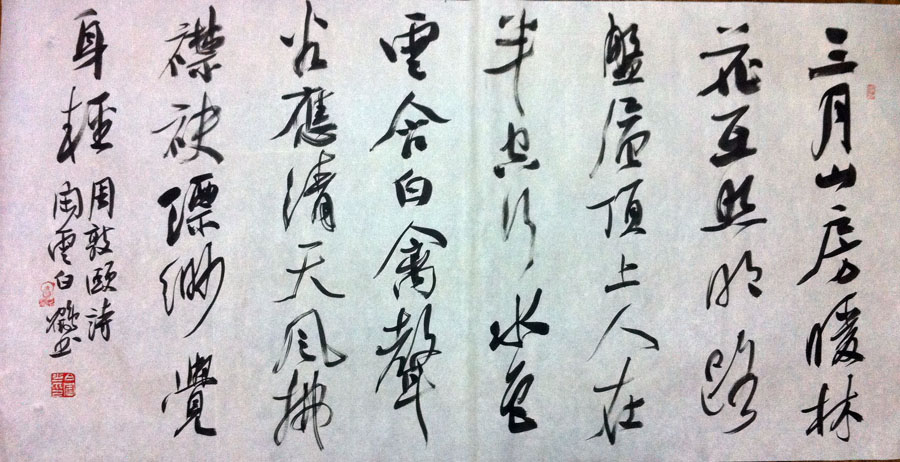 三月山房暖林
花互照明路
盤层頂上人在
半空行水色
雲含白禽聲
谷應清天风拂
襟袂縹緲覺
身輕
周敦頤詩
雲白鶴书